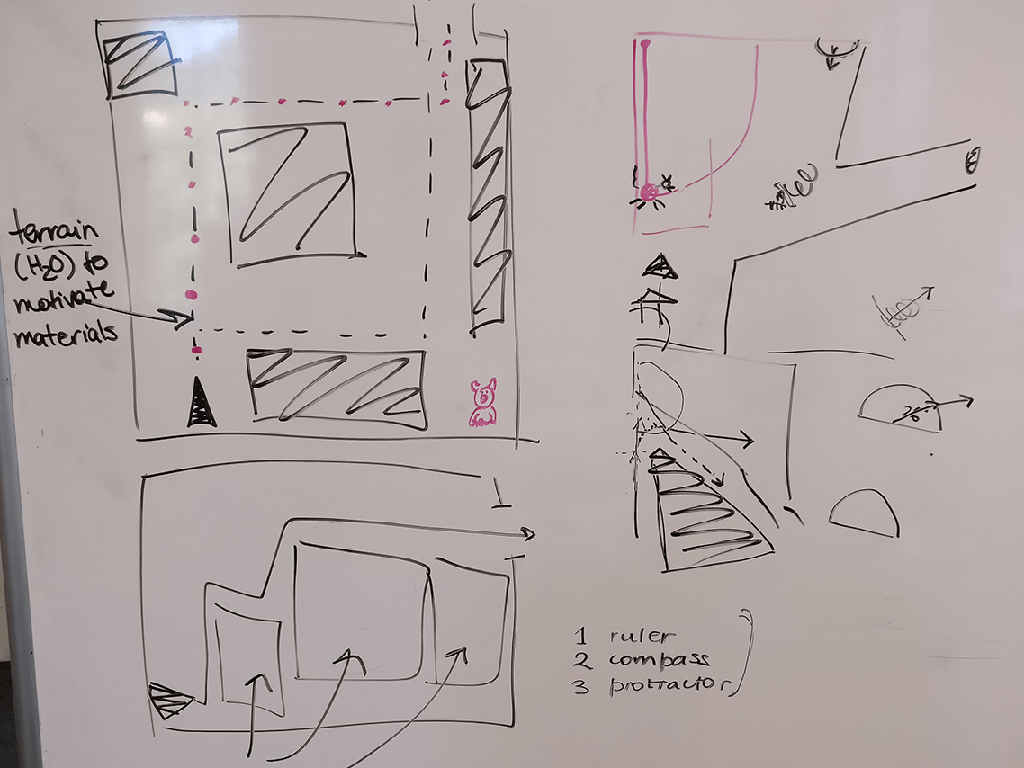 terrain
(H₂O) to
motivate
materials
1 ruler
2 compass
3 protractor